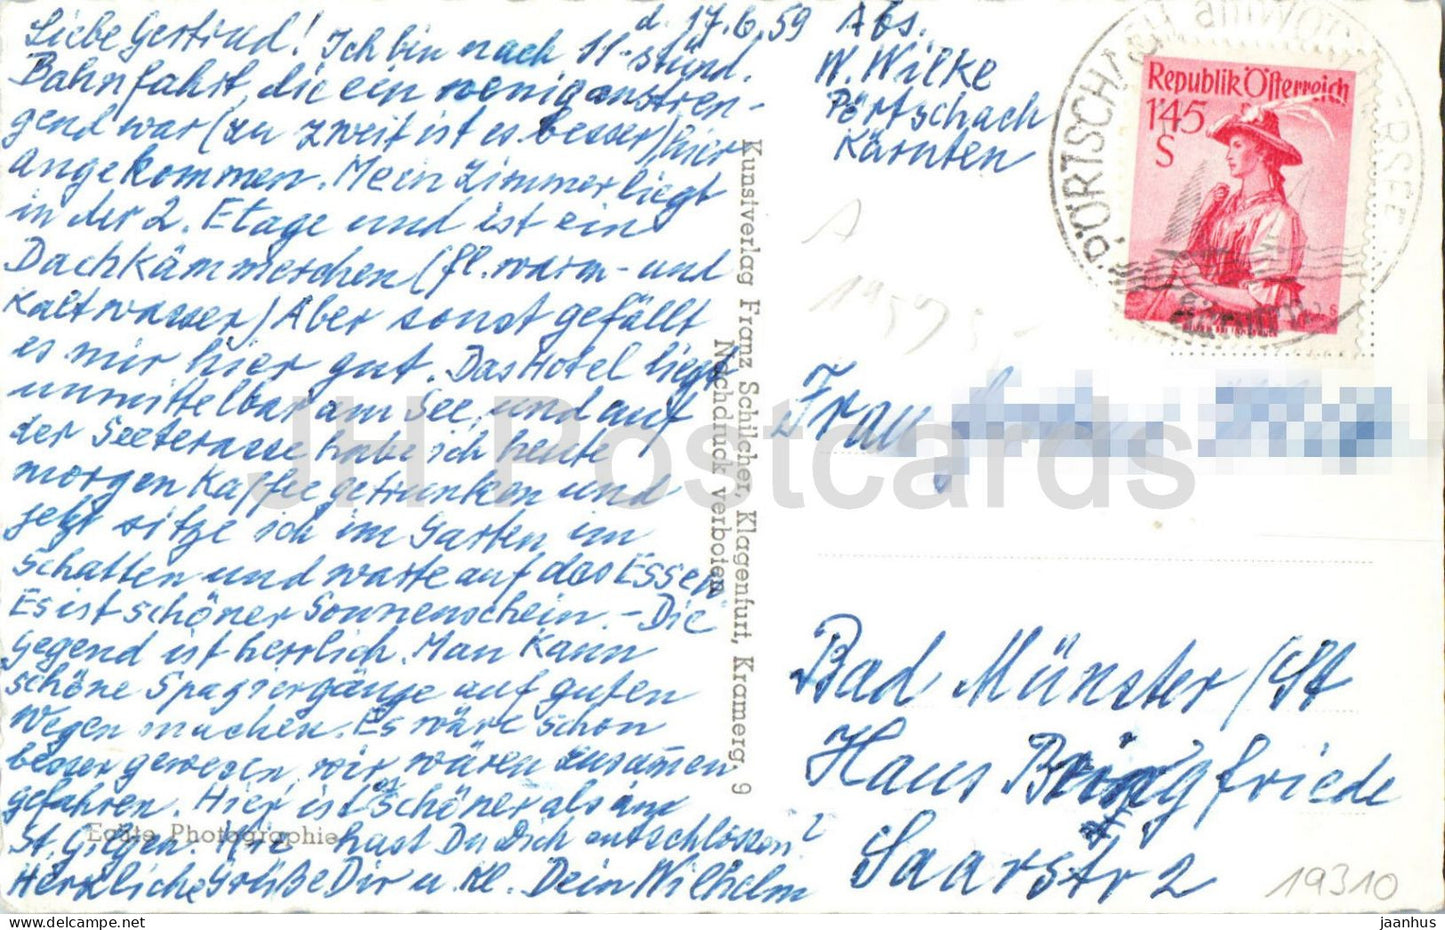 d. 17.6.59
Liebe Gertrud! Ich bin nach 11-stünd.
Bahnfahrt, die ein wenig anstren-
gend war (zu zweit ist es besser), hier
angekommen. Mein Zimmer liegt
in der 2. Etage und ist ein
Dachkämmerchen (fl. warm- und
Kaltwasser) Aber sonst gefällt
es mir hier gut. Das Hotel liegt
unmittelbar am See, und auf
der Seeterasse habe ich heute
morgen Kaffee getrunken und
jetzt sitze ich im Garten im
Schatten und warte auf das Essen
Es ist schöner Sonnenschein. - Die
Gegend ist herrlich. Man kann
schöne Spaziergänge auf guten
Wegen machen. Es wäre schon
besser gewesen, wir wären zusammen
gefahren. Hier ist es schöner als in
St. Gilgen. hast Du Dich entschlossen?
Herzliche Grüße Dir u. Kl. Dein Wilhelm
Echte Photographie
Kunstverlag Franz Schilcher, Klagenfurt, Kramerg. 9
Nachdruck verboten
Abs.
W. Wilke
Pörtschach
Kärnten
PÖRTSCHACH AM WÖRTHERSEE
Republik Österreich
1'45
S
A
1959
Frau
Bad Münster/St
Haus Bringfriede
Saarstr 2
19310
JH Postcards
jaanhus
eu.delcampe.net